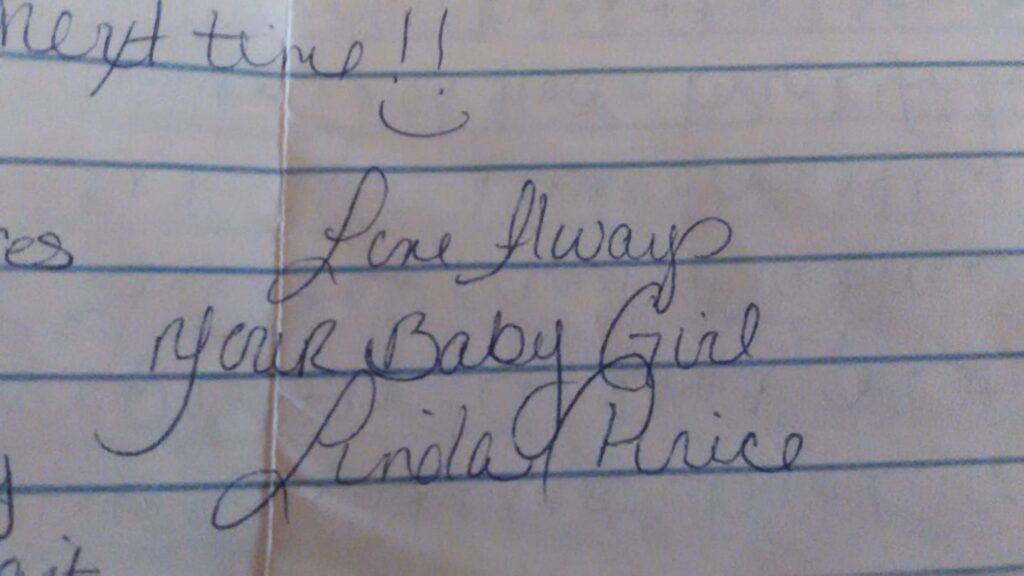 next time!!
Love Always
Your Baby Girl
Linda Price